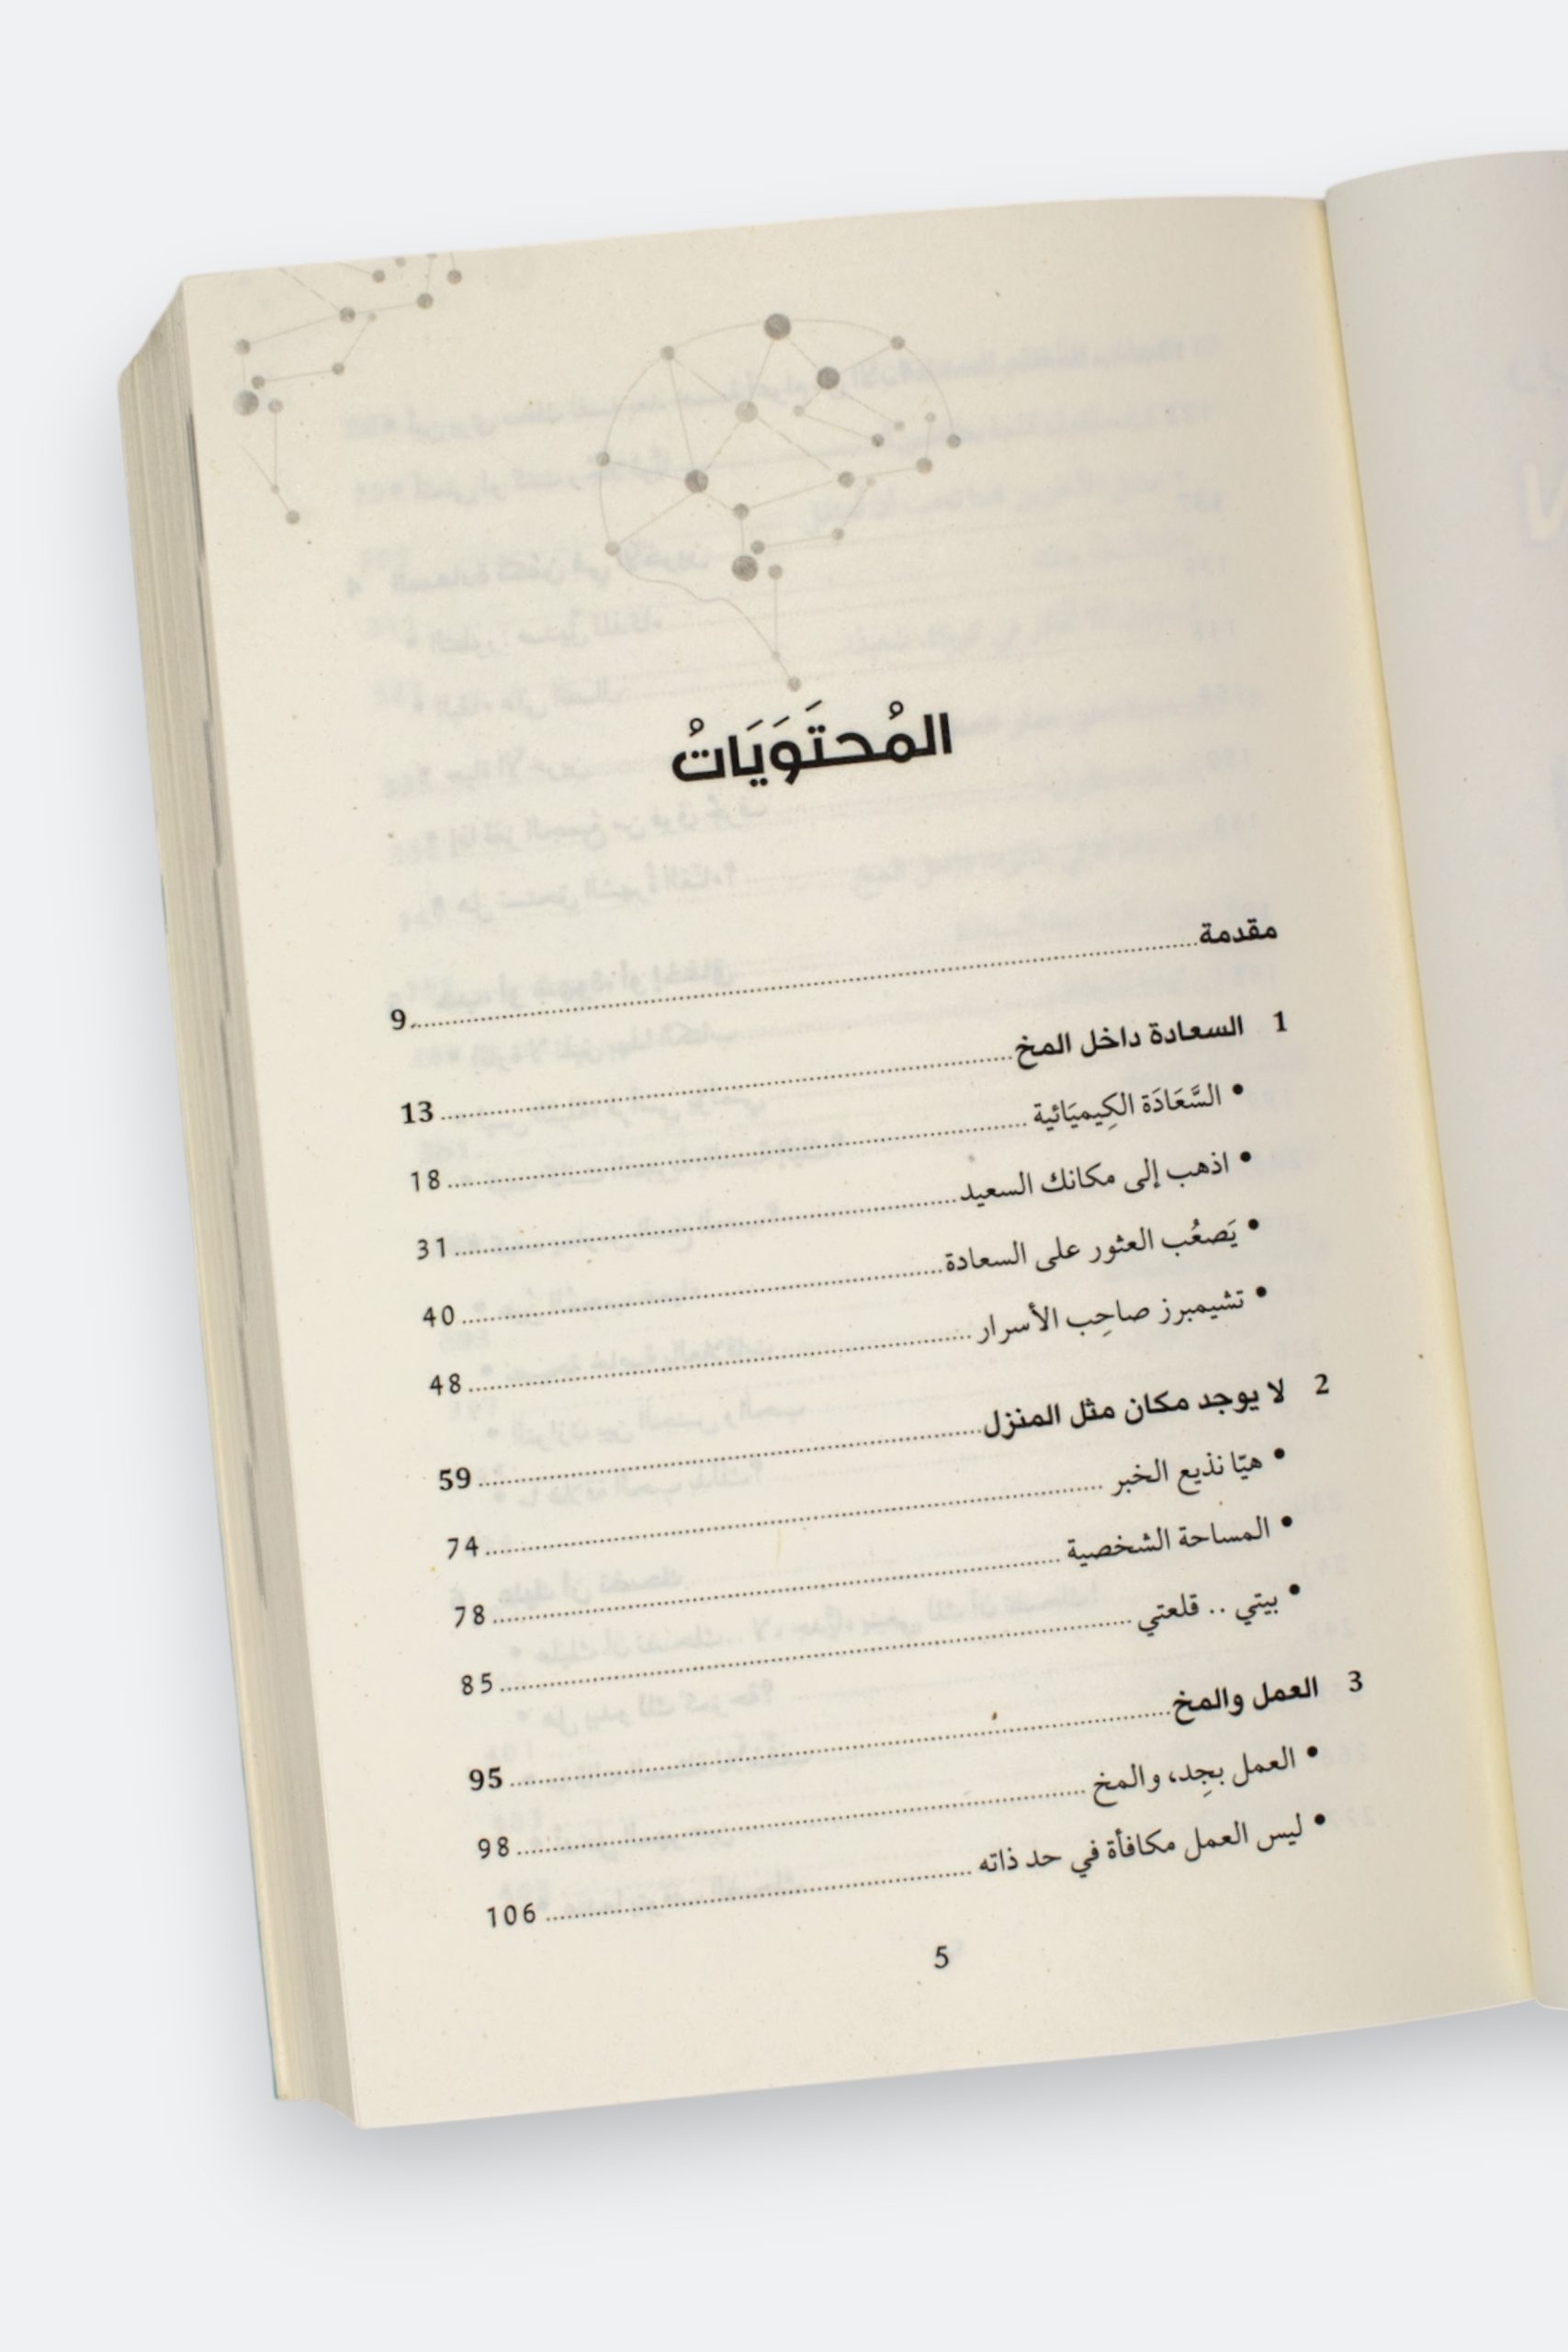 المُحتَوَيَاتُ
مقدمة................................9
1 السعادة داخل المخ................................13
• السَّعَادَة الكِيميَائية................................18
• اذهب إلى مكانك السعيد................................31
• يَصعُب العثور على السعادة................................40
• تشيمبرز صاحِب الأسرار................................48
2 لا يوجد مكان مثل المنزل................................59
• هيّا نذيع الخبر................................74
• المساحة الشخصية................................78
• بيتي .. قلعتي................................85
3 العمل والمخ................................95
• العمل بجِد، والمخ................................98
• ليس العمل مكافأة في حد ذاته................................106
5